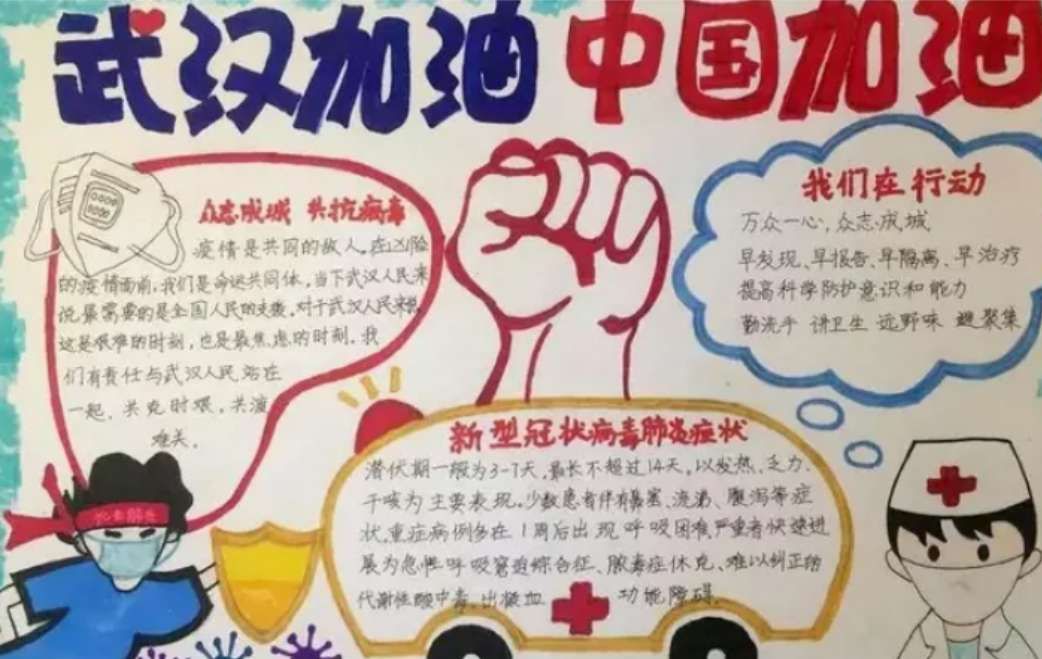 武汉加油 中国加油
众志成城 共抗病毒
疫情是共同的敌人。在凶险
的疫情面前,我们是命运共同体,当下武汉人民来
说最需要的是全国人民的支援。对于武汉人民来说
这是艰难的时刻,也是最焦虑的时刻。我
们有责任与武汉人民站在
一起、共克时艰、共渡
难关。
我们在行动
万众一心,众志成城
早发现、早报告、早隔离、早治疗
提高科学防护意识和能力
勤洗手 讲卫生 远野味 避聚集
新型冠状病毒肺炎症状
潜伏期一般为3-7天,最长不超过14天,以发热、乏力、
干咳为主要表现。少数患者伴有鼻塞、流涕、腹泻等症
状。重症病例多在1周后出现呼吸困难,严重者快速进
展为急性呼吸窘迫综合征、脓毒症休克、难以纠正的
代谢性酸中毒、出凝血功能障碍。